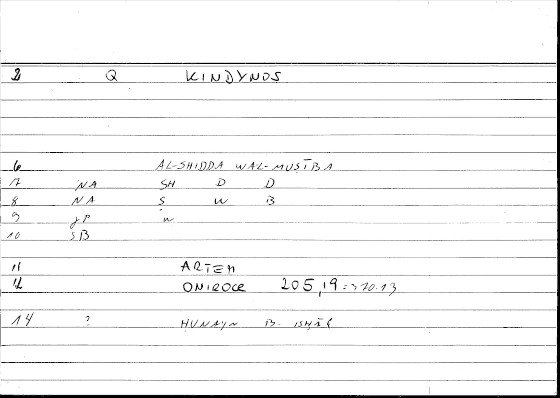 2 Q KINDYNOS
6 AL-SHIDDA WAL-MUṢĪBA
7 NA SH D D
8 NA Ṣ W B
9 gP w
10 SB
11 ARTEM
12 ONIROCR 205,19 = 370.13
14 ? ḤUNAYN B. ISḤĀQ